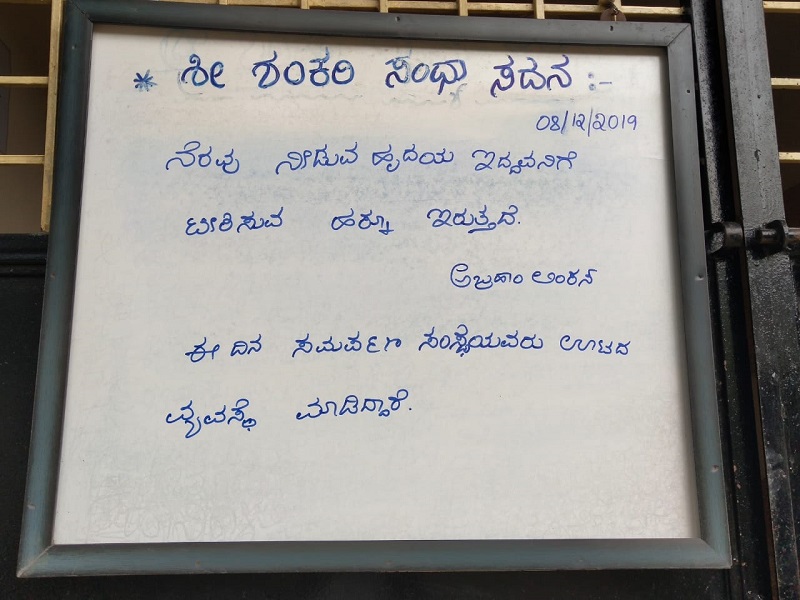 * ಶ್ರೀ ಶಂಕರಿ ಸಂಧ್ಯಾ ಸದನ :-
08/12/2019
ನೆರವು ನೀಡುವ ಹೃದಯ ಇದ್ದವನಿಗೆ
ಟೀಕಿಸುವ ಹಕ್ಕೂ ಇರುತ್ತದೆ.
ಅಬ್ರಹಾಂ ಲಿಂಕನ್
ಈ ದಿನ ಸಮರ್ಪಣ ಸಂಸ್ಥೆಯವರು ಊಟದ
ವ್ಯವಸ್ಥೆ ಮಾಡಿದ್ದಾರೆ.